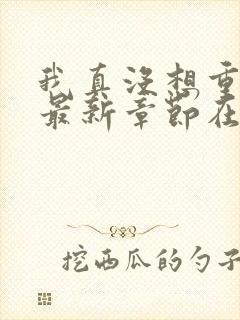 我真没想重
最新章节在
挖西瓜的勺子